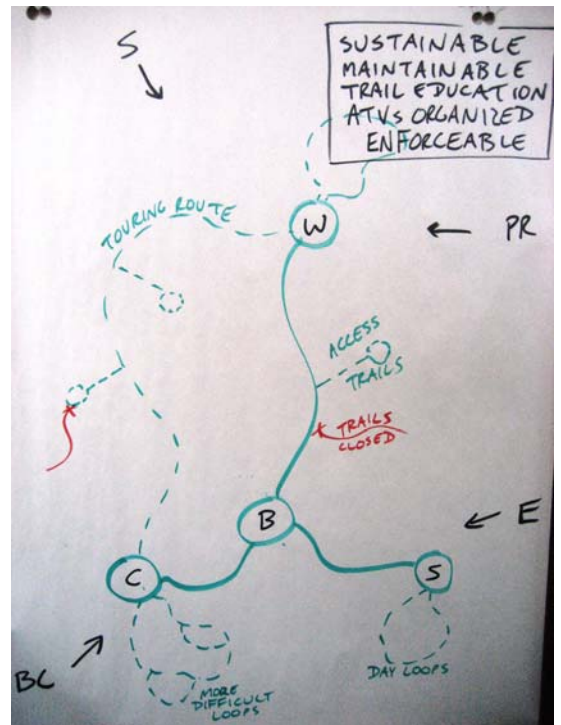 S
SUSTAINABLE
MAINTAINABLE
TRAIL EDUCATION
ATVs ORGANIZED
ENFORCEABLE
TOURING ROUTE
W
PR
ACCESS
TRAILS
TRAILS
CLOSED
B
E
C
S
BC
MORE
DIFFICULT
LOOPS
DAY LOOPS